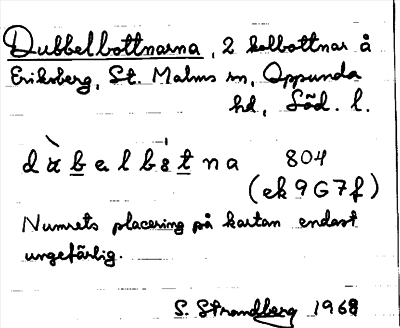 Dubbelbottnarna, 2 kolbottnar å
Eriksberg, St. Malms sn, Oppunda
hd, Söd. l.
dàbelbåtna 804
(ek 9G7f)
Numrets placering på kartan endast
ungefärlig.
S. Strandberg 1968